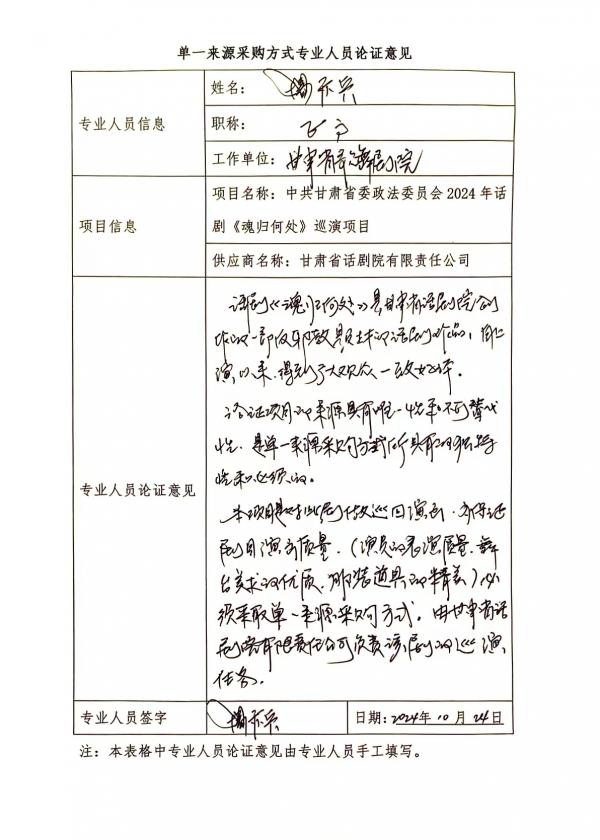 单一来源采购方式专业人员论证意见
专业人员信息
姓名：
职称：
工作单位：甘肃省 剧院
项目信息
项目名称：中共甘肃省委政法委员会 2024 年话
剧《魂归何处》巡演项目
供应商名称：甘肃省话剧院有限责任公司
专业人员论证意见
话剧《魂归何处》是甘肃省话剧院创
作的一部反邪教题材的话剧作品，自上
演以来，得到了大众观众一致好评。
论证项目的来源具有唯一性和不可替代
性，是单一来源采购方式所具有的独特
性和必须的。
本项目是对此剧做巡回演出，为保证
剧目演出质量，（演员的表演质量、舞
台美术的优质、服装道具的精美）必
须采取单一来源采购方式，由甘肃省话
剧院有限责任公司负责该剧的巡演
任务。
专业人员签字
日期：2024年10月24日
注：本表格中专业人员论证意见由专业人员手工填写。